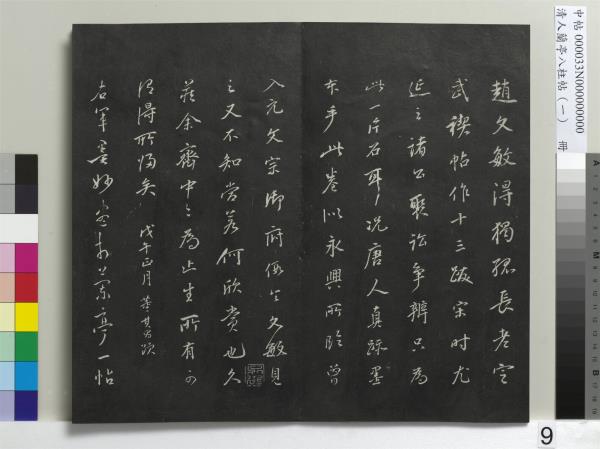 趙文敏得獨孤長老定
武禊帖作十三跋宋時尤
延之諸公聚訟爭辨只為
此一片石耳況唐人真蹟墨
本乎此卷似永興所臨曾
入元文宗御府假令文敏見
之又不知當若何欣賞也久
藏余齋中今為止生所有可
謂得所歸矣 戊午正月 董其昌跋
右軍書妙無如蘭亭一帖
中帖 000033N000000000
清人蘭亭八柱帖（一） 冊
9